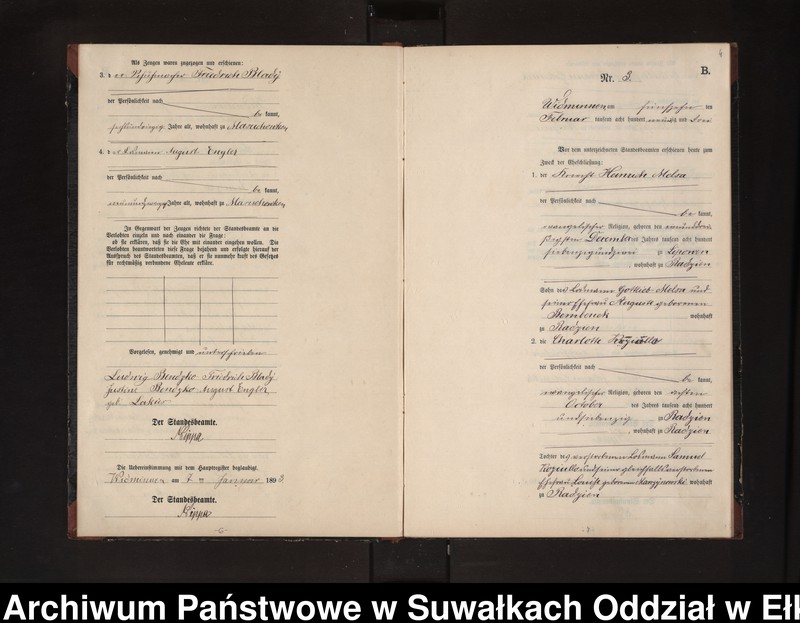 Als Zeugen waren zugezogen und erschienen:
3. d er Friedrich Blady
der Persönlichkeit nach
be kannt,
Jahre alt, wohnhaft zu Marcinowken
4. d er August Engler
der Persönlichkeit nach
be kannt,
Jahre alt, wohnhaft zu Marcinowken
In Gegenwart der Zeugen richtete der Standesbeamte an die
Verlobten einzeln und nach einander die Frage:
ob sie erklären, daß sie die Ehe mit einander eingehen wollen. Die
Verlobten beantworteten diese Frage bejahend und erfolgte hierauf der
Ausspruch des Standesbeamten, daß er sie nunmehr kraft des Gesetzes
für rechtmäßig verbundene Eheleute erkläre.
Vorgelesen, genehmigt und unterschrieben
Ludwig Bendzko Friedrich Blady
Justine Bendzko August Engler
geb.
Der Standesbeamte.
Kippa
Die Uebereinstimmung mit dem Hauptregister beglaubigt.
Widminnen am 7 ten Januar 1893
Der Standesbeamte.
Kippa
-6-
4
B.
Nr. 3.
Widminnen am fünfzehn ten
Februar tausend acht hundert neunzig und drei
Vor dem unterzeichneten Standesbeamten erschienen heute zum
Zweck der Eheschließung:
1. der Knecht Heinrich
der Persönlichkeit nach
be kannt,
evangelischer Religion, geboren den
Dezember des Jahres tausend acht hundert
zu
, wohnhaft zu Radzien
Sohn des Losmann Gottlieb und
seiner Ehefrau Auguste geborenen
wohnhaft
zu Radzien
2. die Charlotte
der Persönlichkeit nach
be kannt,
evangelischer Religion, geboren den achten
October des Jahres tausend acht hundert
und siebenzig zu Radzien
, wohnhaft zu Radzien
Tochter des verstorbenen Losmann Samuel
und seiner gleichfalls verstorbenen
Ehefrau Louise geborene wohnhaft
zu Radzien
-7-
Archiwum Państwowe w Suwałkach Oddział w Ełk